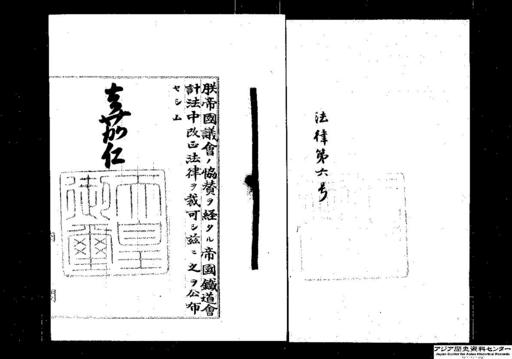 法律第六号
朕帝國議會ノ協賛ヲ経タル帝國鐵道會
計法中改正法律ヲ裁可シ茲ニ之ヲ公布
セシム
嘉仁
天皇
御璽
アジア歴史資料センター
Japan Center for Asian Historical Records